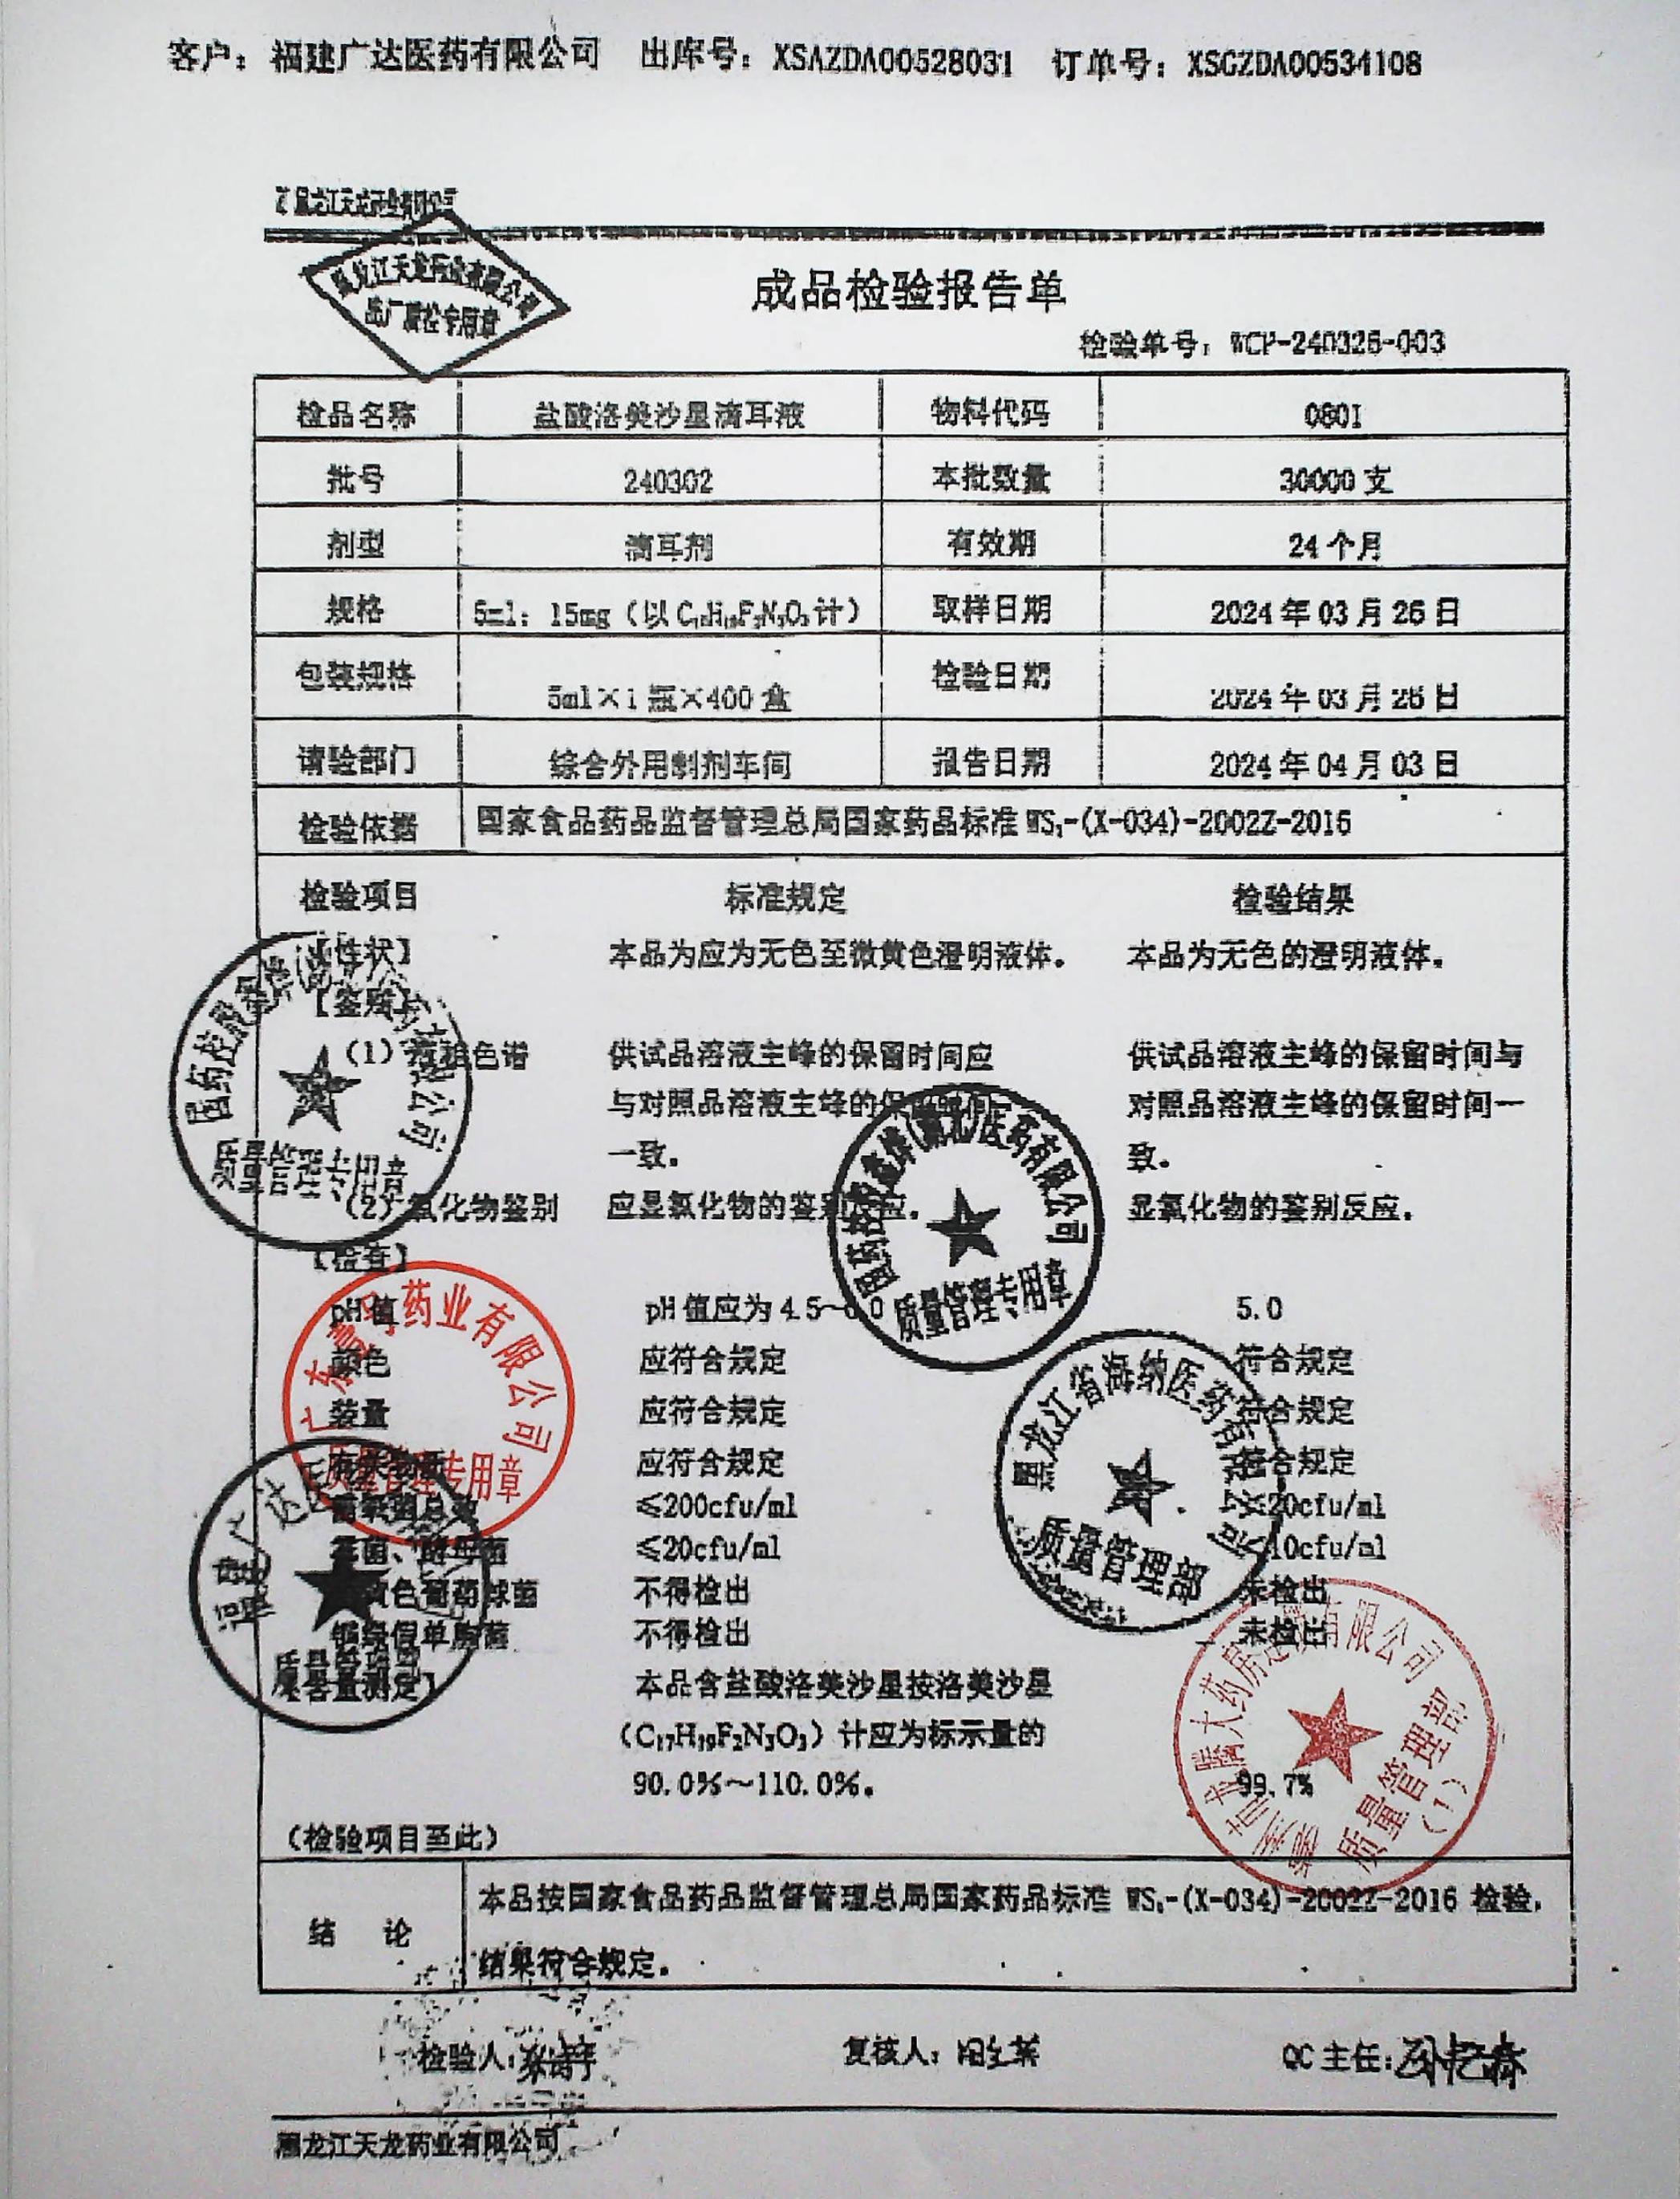 客户：福建广达医药有限公司 出库号：XSAZDA00528031 订单号：XSCZDA00534108
黑龙江天龙药业有限公司
黑龙江天龙药业有限公司
出厂质检专用章
成品检验报告单
检验单号：WCP-240326-003
检品名称 盐酸洛美沙星滴耳液 物料代码 0801
批号 240302 本批数量 30000 支
剂型 滴耳剂 有效期 24 个月
规格 5ml：15mg（以 C₁₇H₁₉F₂N₃O₃计） 取样日期 2024 年 03 月 26 日
包装规格 5ml×1 瓶×400 盒 检验日期 2024 年 03 月 26 日
请验部门 综合外用制剂车间 报告日期 2024 年 04 月 03 日
检验依据 国家食品药品监督管理总局国家药品标准 WS₁-(X-034)-2002Z-2016
检验项目 标准规定 检验结果
【性状】 本品为应为无色至微黄色澄明液体。 本品为无色的澄明液体。
【鉴别】
（1）液相色谱 供试品溶液主峰的保留时间应 供试品溶液主峰的保留时间与
与对照品溶液主峰的保留时间 对照品溶液主峰的保留时间一
一致。 致。
（2）氯化物鉴别 应显氯化物的鉴别反应。 显氯化物的鉴别反应。
【检查】
pH 值 pH 值应为 4.5～6.0 5.0
颜色 应符合规定 符合规定
装量 应符合规定 符合规定
应符合规定 符合规定
需氧菌总数 ≤200cfu/ml <20cfu/ml
霉菌、酵母菌 ≤20cfu/ml <10cfu/ml
金黄色葡萄球菌 不得检出 未检出
铜绿假单胞菌 不得检出 未检出
【含量测定】 本品含盐酸洛美沙星按洛美沙星
（C₁₇H₁₉F₂N₃O₃）计应为标示量的
90.0%～110.0%。 99.7%
（检验项目至此）
结 论 本品按国家食品药品监督管理总局国家药品标准 WS₁-(X-034)-2002Z-2016 检验，
结果符合规定。
检验人： 复核人： QC 主任：
黑龙江天龙药业有限公司
质量管理专用章
质量管理专用章
药业有限公司
质量管理专用章
黑龙江省海纳医药有限公司
质量管理部
福建广达医药有限公司
质量管理部
大药房连锁有限公司
质量管理部
（1）